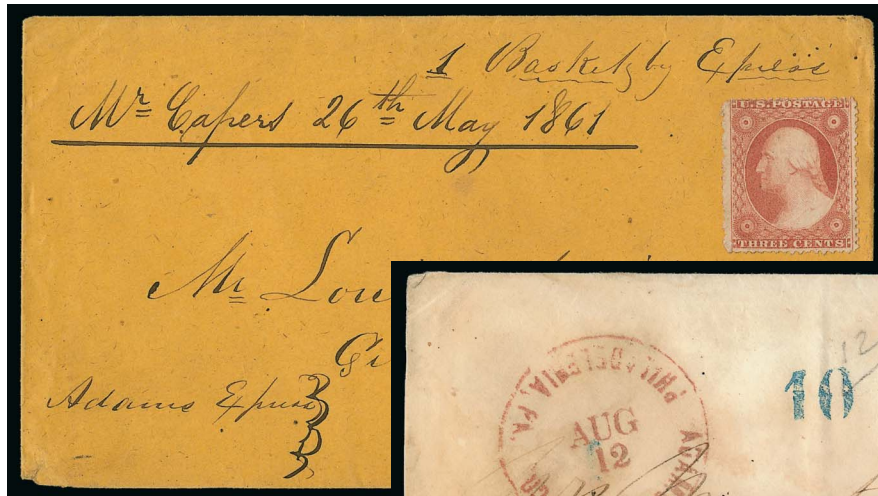 1 Basket by Express
Mr Capers 26th May 1861
U.S. POSTAGE
THREE CENTS
Mr Lou
Gi
Adams Express
PHILADELPHIA, PA.
AUG
12
10
12